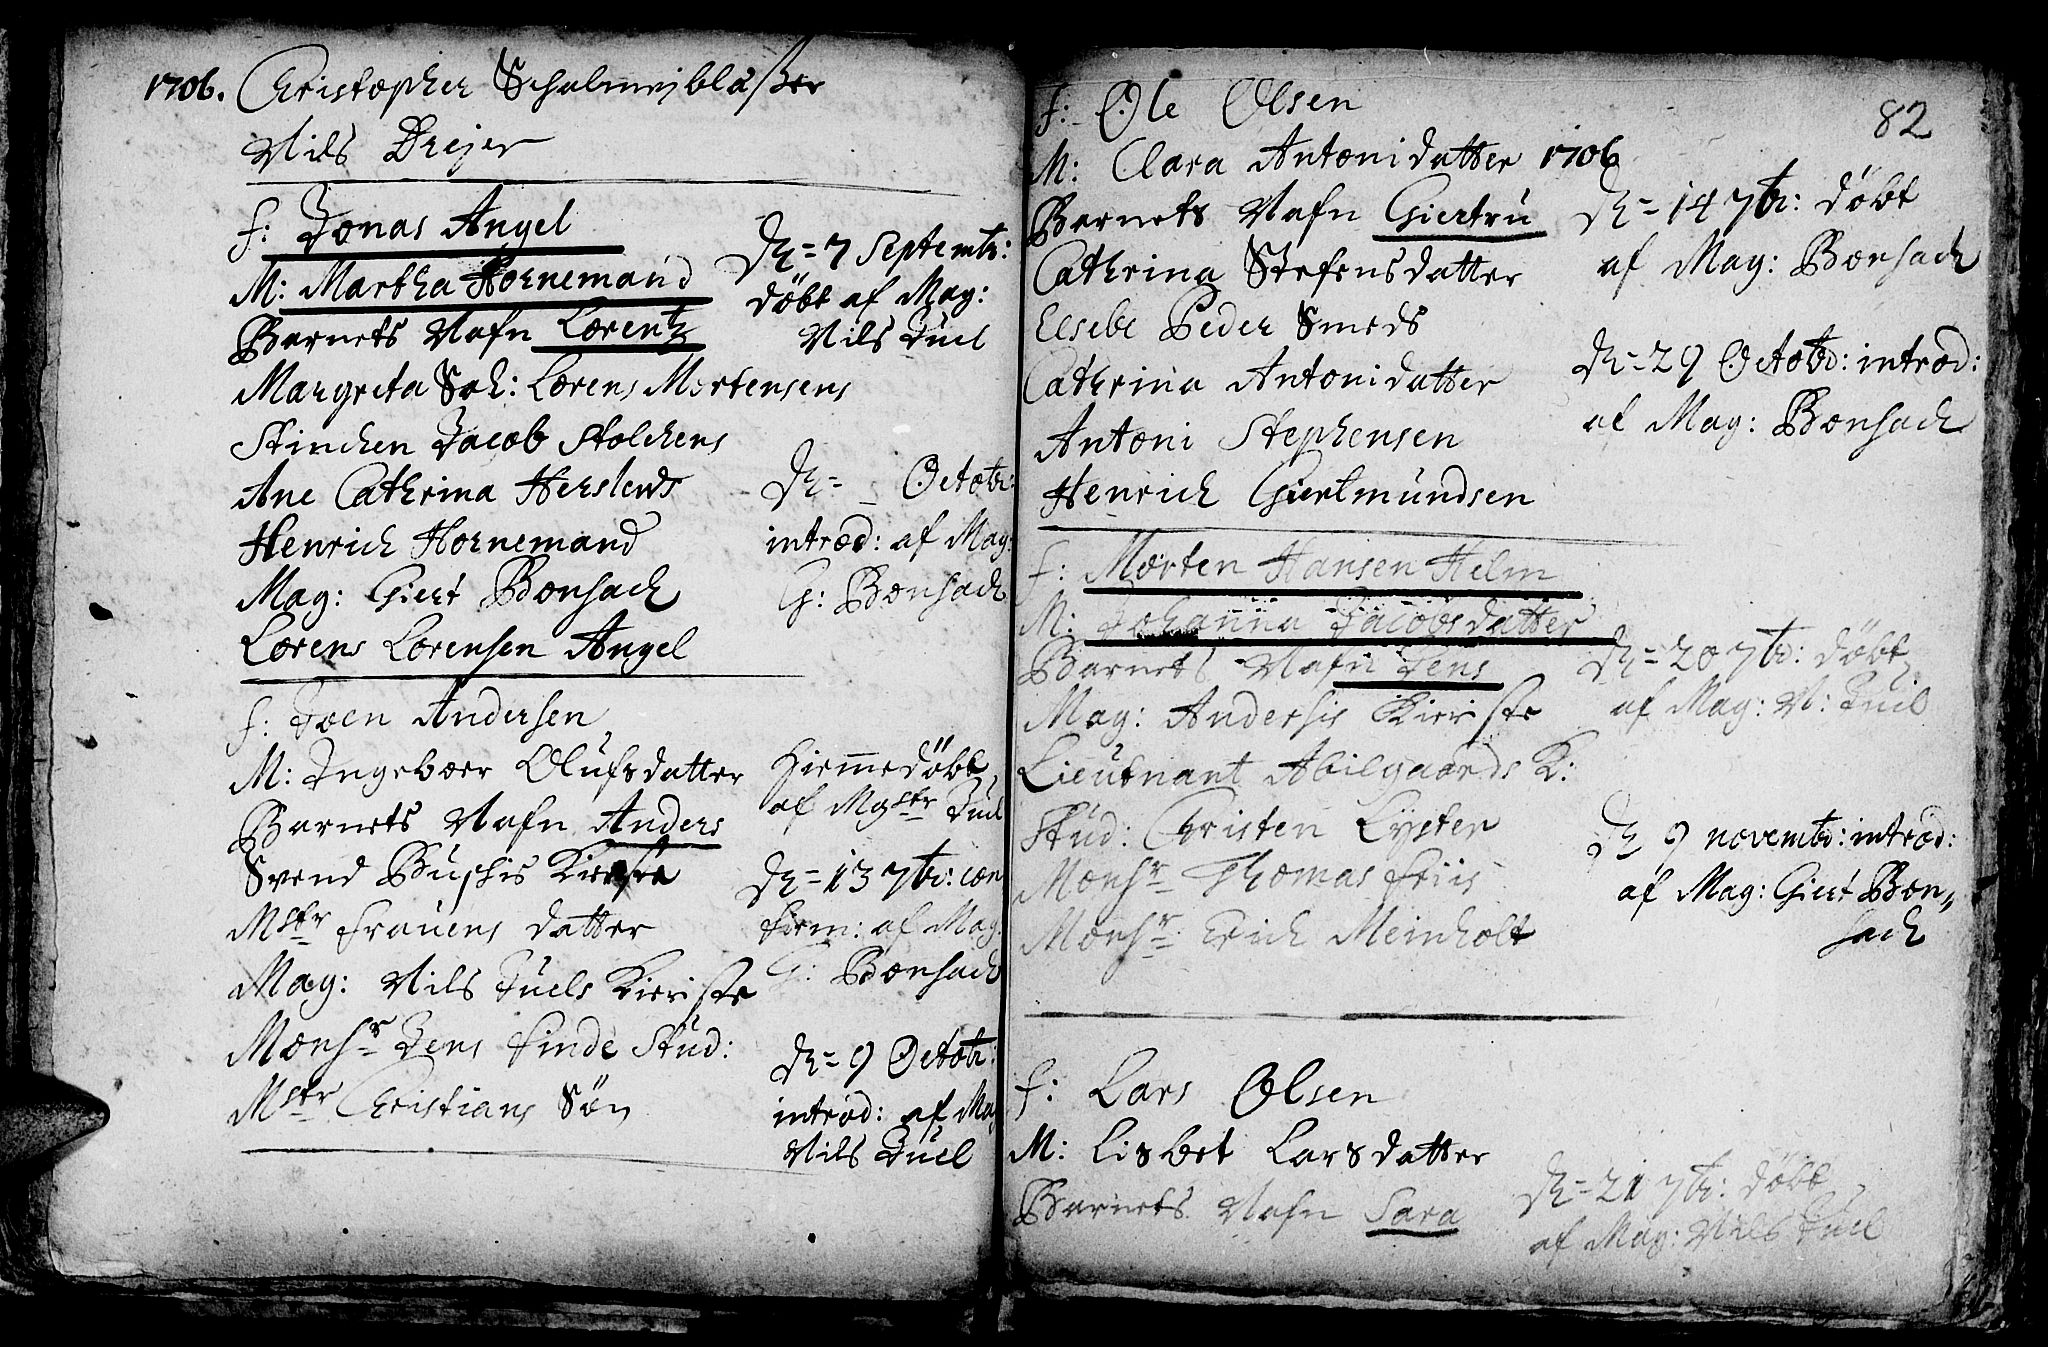 1706. Christopher Schalmejblaßer
Nils Drejer
F: Jonas Angel
M: Martha Hornemand
Barnets Nafn Lorentz
Margreta Sal: Lorens Mortensens
Stinchen Jacob Stolchens
Ane Cathrina Herslevs
Henrich Hornemand
Mag: Giert Bonsach
Lorens Lorensen Angel
D. = 7 Septembr:
döbt af Mag:
Nils Juel
D. = _ Octobr:
introd: af Mag:
G: Bonsach
F: Joen Andersen
M: Ingeboer Olufsdatter
Barnets Nafn Anders
Svend Buschis Kieriste
Mstr Frauens datter
Mag: Nils Juels Kieriste
Monsr Jens Finde Stud:
Mstr Christians Sön
Hiemedöbt
af Mgstr Juel
D. = 13 7br: con
firm: af Mag.
G: Bonsach
D. = 9 Octobr:
introd: af Mag
Nils Juel
82
F: Ole Olsen
M: Clara Antonidatter 1706
Barnets Nafn Giertru
Cathrina Stefensdatter
Elsebe Peder Smeds
Cathrina Antonidatter
Antoni Stephensen
Henrich Giertmundsen
D. = 14 7br: döbt
af Mag: Bonsach
D. = 29 Octobr: introd:
af Mag: Bonsach
F: Morten Hansen Helm
M: Johanna Jacobsdatter
Barnets Nafn Jens
Mag: Andersis Kieriste
Lieutnant Abilgaards K:
Stud: Christen Lÿster
Monsr Thomas Friis
Monsr Erich Meinholt
D. = 20 7br: döbt
af Mag: N: Juel
D. 9 novembr: introd:
af Mag: Giert Bon„
sach
F: Lars Olsen
M: Lisbet Larsdatter
Barnets Nafn Sara
D. = 21 7br: döbt
af Mag: Nils Juel